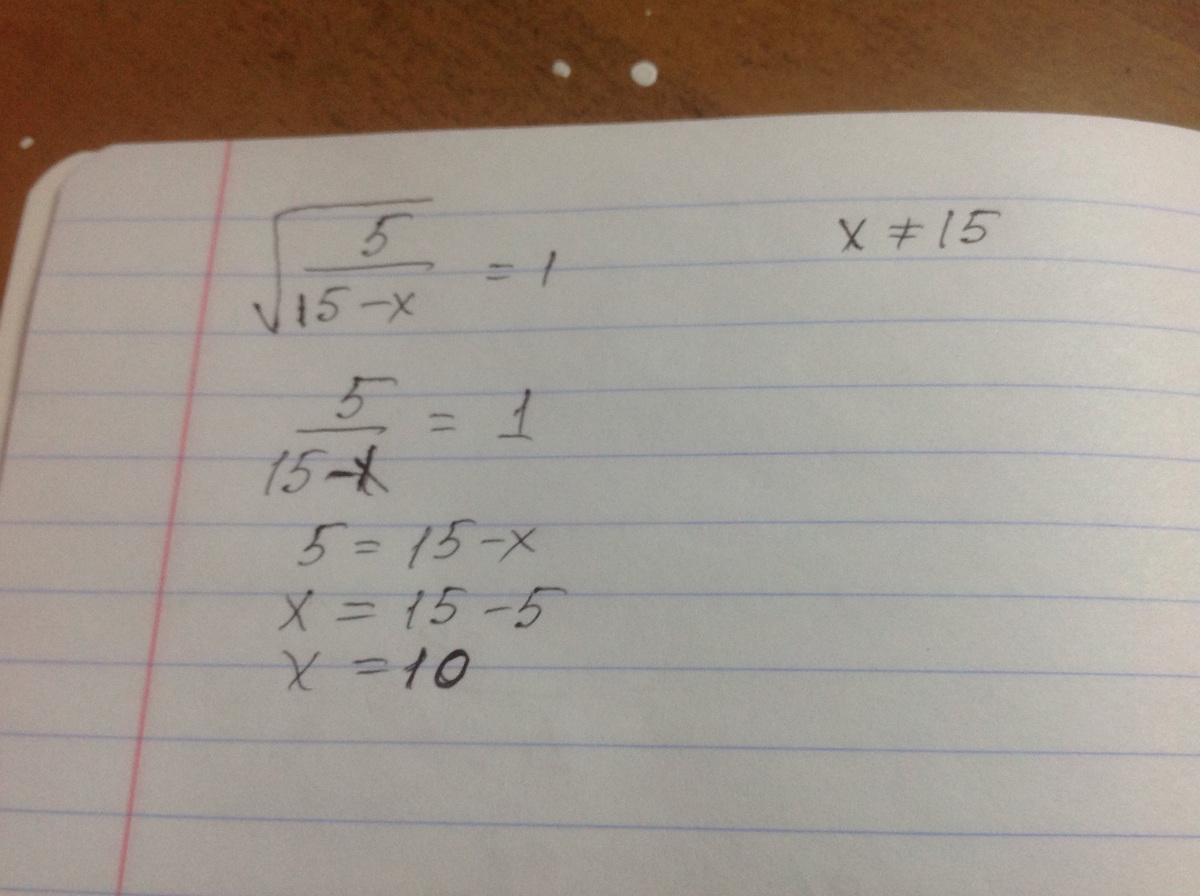 √(5/(15-x)) = 1
x ≠ 15
5/(15-x) = 1
5 = 15-x
x = 15-5
x = 10